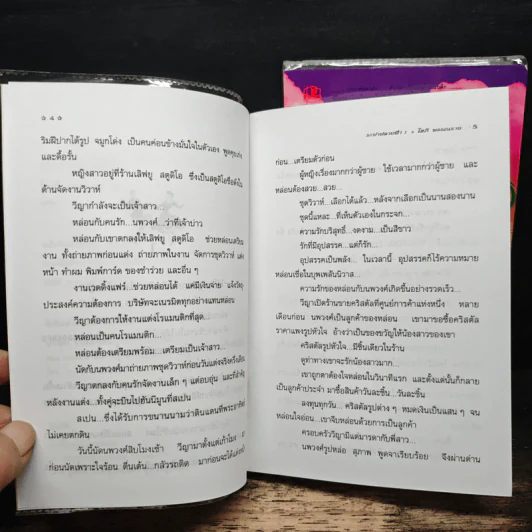 ๔ 4 ๔
ริมฝีปากได้รูป จมูกโด่ง เป็นคนค่อนข้างมั่นใจในตัวเอง พูดคุยเก่ง
และดื้อรั้น
หญิงสาวอยู่ที่ร้านเลิฟยู สตูดิโอ ซึ่งเป็นสตูดิโอชื่อดัง
ด้านจัดงานวิวาห์
วีญากำลังจะเป็นเจ้าสาว...
หล่อนกับคนรัก...นพวงศ์...ว่าที่เจ้าบ่าว
หล่อนกับเขาตกลงให้เลิฟยู สตูดิโอ ช่วยหล่อนเตรียม
งาน ทั้งถ่ายภาพก่อนแต่ง ถ่ายภาพในงาน จัดการชุดวิวาห์ แต่ง
หน้า ทำผม พิมพ์การ์ด ของชำร่วย และอื่น ๆ
งานเวดดิ้งแพร์...ช่วยหล่อนได้ แค่มีเงินจ่าย แจ้งวัตถุ
ประสงค์ความต้องการ บริษัทจะเนรมิตทุกอย่างแทนหล่อน
วีญาต้องการให้งานแต่งโรแมนติกที่สุด...
หล่อนเป็นคนโรแมนติก...
หล่อนต้องเตรียมพร้อม...เตรียมเป็นเจ้าสาว...
นัดกับนพวงศ์มาถ่ายภาพชุดวิวาห์ก่อนวันแต่งจริงครึ่งเดือน
วีญาตกลงกับคนรักจัดงานเล็ก ๆ แต่อบอุ่น และที่สำคัญ
หลังงานแต่ง...ทั้งคู่จะบินไปฮันนีมูนที่สเปน
สเปน...ซึ่งได้รับการขนานนามว่าดินแดนที่พระอาทิตย์
ไม่เคยตกดิน
วันนี้นัดนพวงศ์สิบโมงเช้า วีญามาตั้งแต่เก้าโมง
ก่อนนัดเพราะใจร้อน ตื่นเต้น...กลัวรถติด มาก่อนจะได้แต่ง
5
ก่อน...เตรียมตัวก่อน
ผู้หญิงเรื่องมากกว่าผู้ชาย ใช้เวลามากกว่าผู้ชาย และ
หล่อนต้องสวย...สวย...
ชุดวิวาห์...เลือกได้แล้ว...หลังจากเลือกเป็นนานสองนาน
ชุดนี้แหละ...ที่เห็นตัวเองในกระจก...
ความรักบริสุทธิ์...งดงาม...เป็นสีขาว
รักที่มีอุปสรรค...แต่ก็รัก...
อุปสรรคเป็นพลัง... ในเวลานี้ อุปสรรคก็ไร้ความหมาย
หล่อนเชื่อในบุพเพสันนิวาส...
ความรักของหล่อนกับนพวงศ์เกิดขึ้นอย่างรวดเร็ว...
วีญาเปิดร้านขายคริสตัลที่ศูนย์การค้าแห่งหนึ่ง หลาย
เดือนก่อน นพวงศ์เป็นลูกค้าของหล่อน เขามาขอซื้อคริสตัล
ราคาแพงรูปหัวใจ อ้างว่าเป็นของขวัญให้น้องสาวของเขา
คริสตัลรูปหัวใจ...มีชิ้นเดียวในร้าน
ดูท่าทางเขาจะรักน้องสาวมาก...
เขาถูกตาต้องใจหล่อนในวินาทีแรก และตั้งแต่นั้นก็กลาย
เป็นลูกค้าประจำ มาซื้อสินค้าวันละชิ้น...วันละชิ้น
ลงทุนทุกวัน... คริสตัลรูปต่าง ๆ หมดเงินเป็นแสน ๆ จน
หล่อนใจอ่อน...เขาจีบหล่อนด้วยการเป็นลูกค้า
ครอบครัววีญามีแต่มารดากับพี่สาว...
นพวงศ์รูปหล่อ สุภาพ พูดจาเรียบร้อย จึงผ่านด่าน